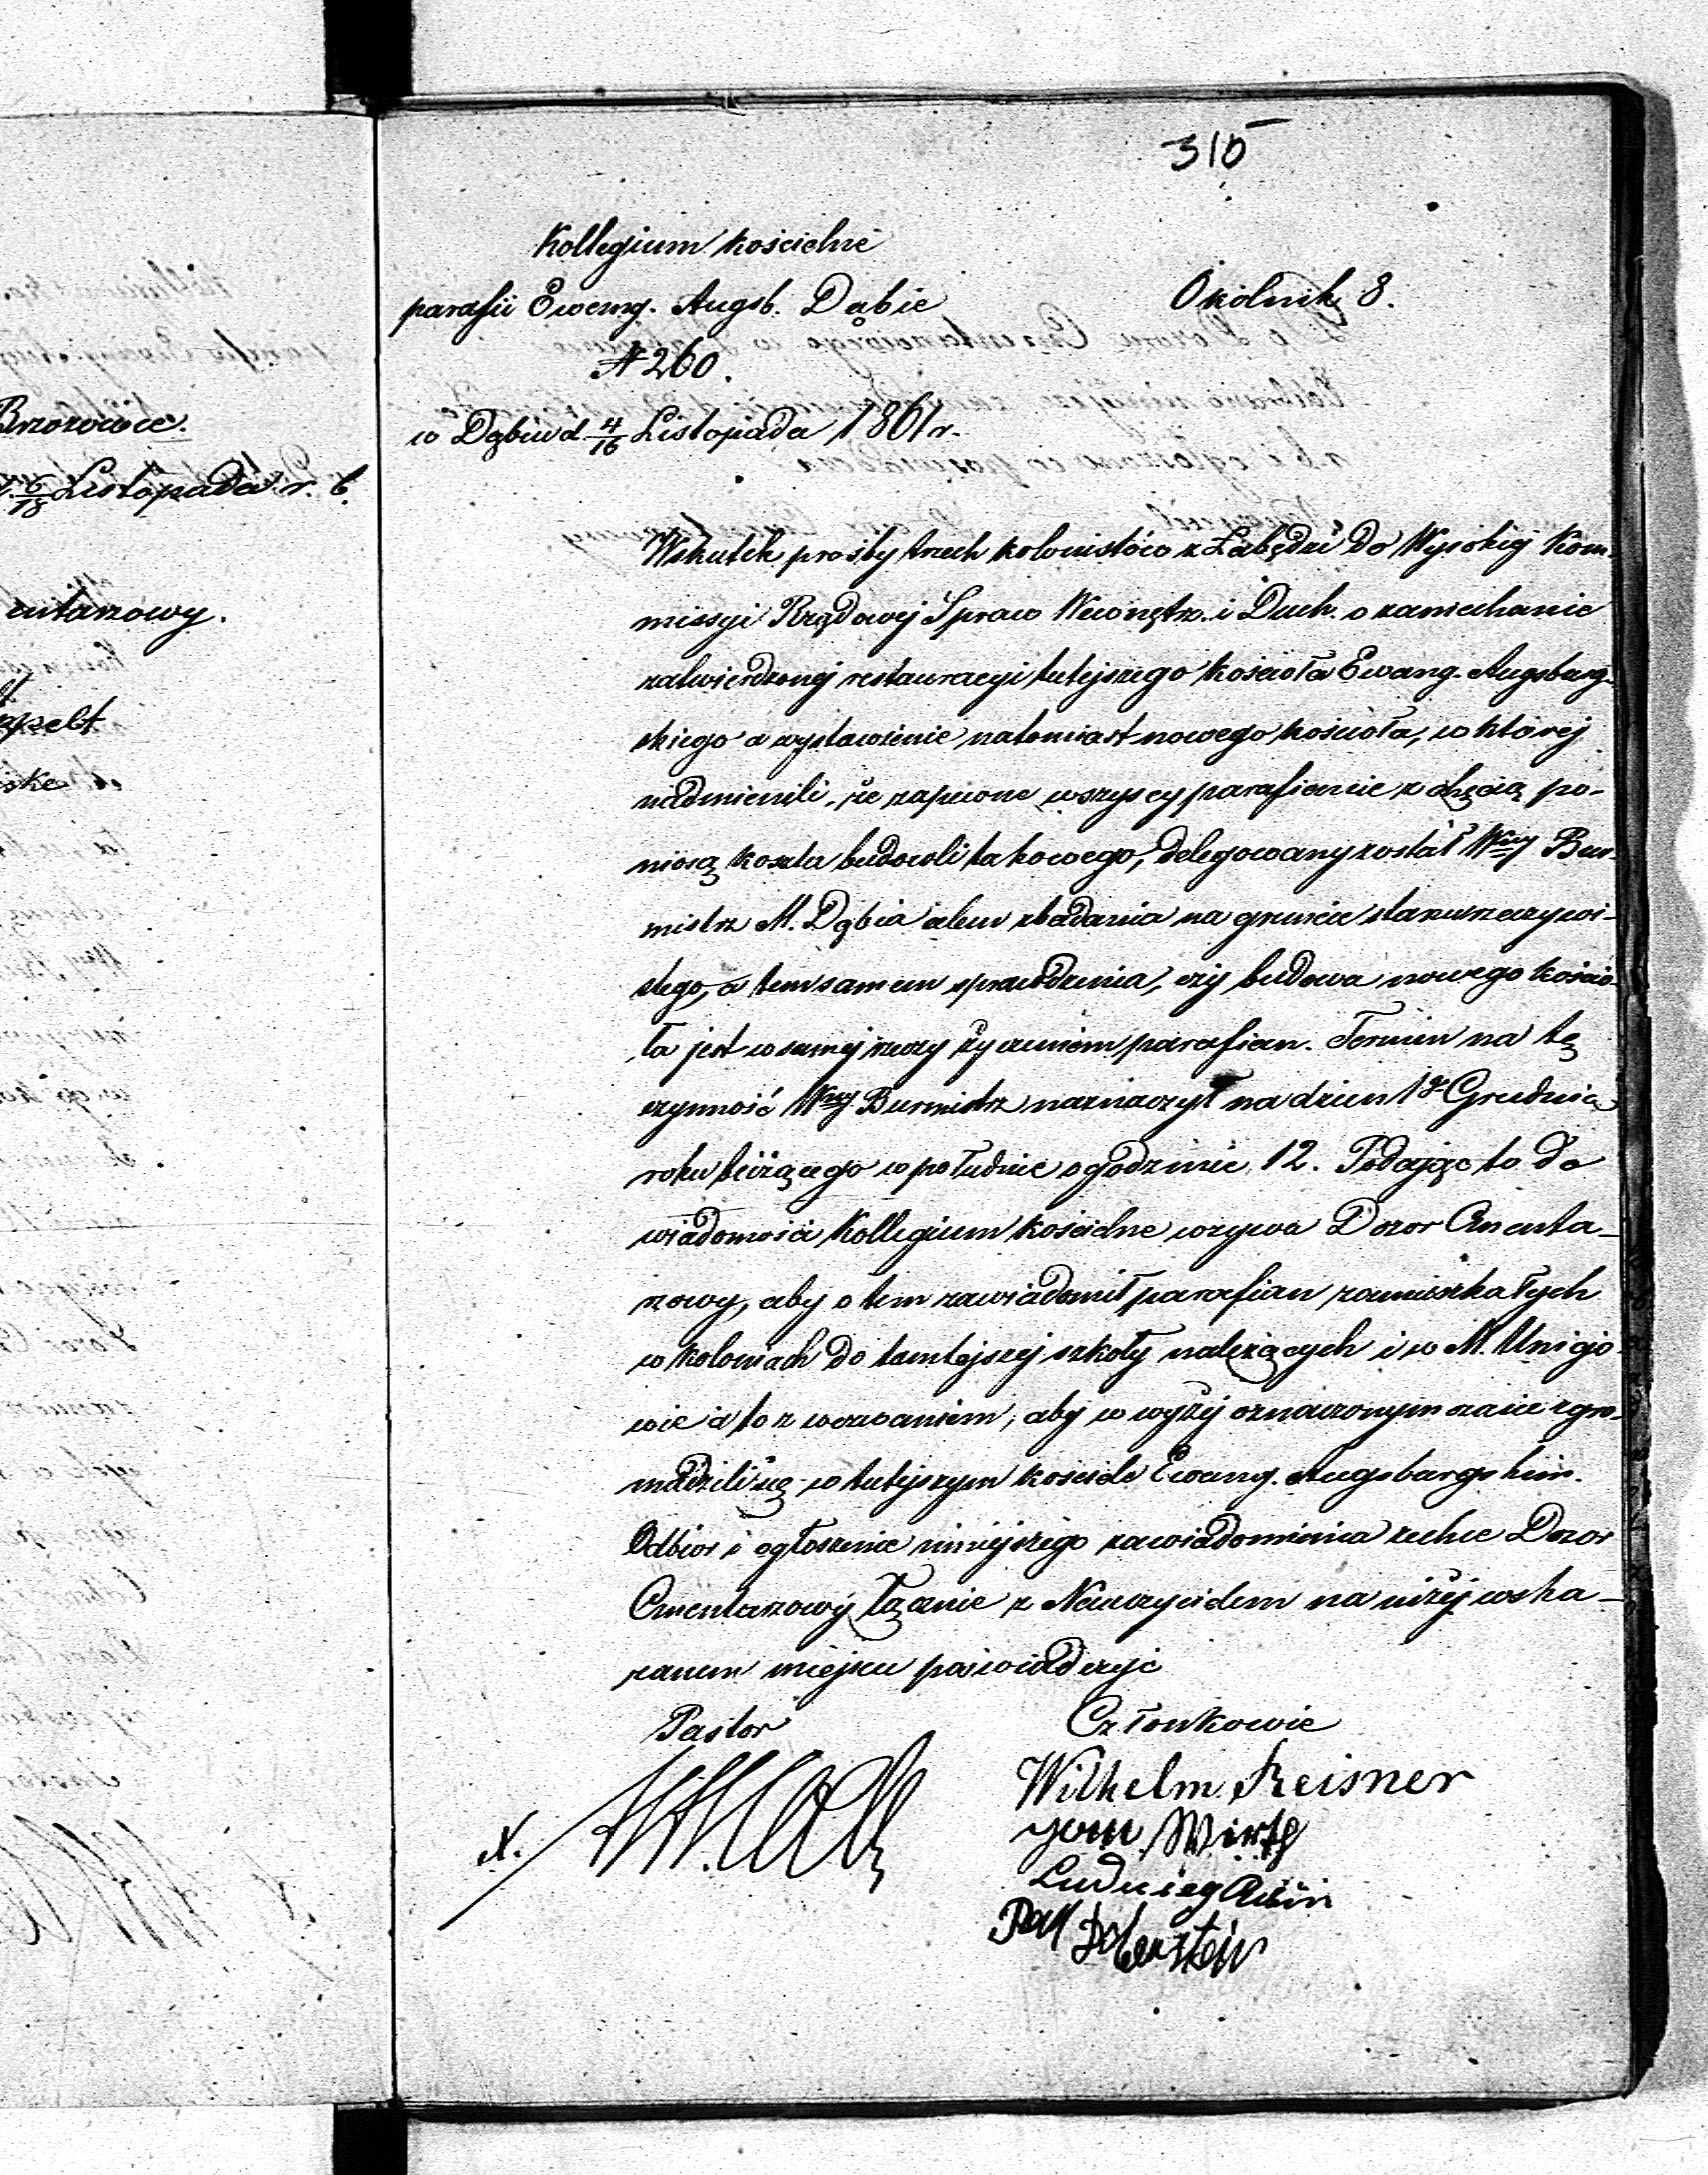 315
Kollegium kościelne
parafii Ewang. Augsb. Dąbie
Okólnik 8.
N 260.
w Dąbiu d. 4/16 Listopada 1861 r.
Brzozowice.
6/18 Listopada r. b.
entarzowy.
Wskutek prośby trzech kolonistów z Łabędzi do Wysokiej Kom-
missyi Rządowej Spraw Wewnętrz. i Duch. o zaniechanie
zatwierdzonej restauracyi tutejszego kościoła Ewang. Augsburg-
skiego a wystawienie natomiast nowego kościoła, w której
nadmienili, że zapewne wszyscy parafianie z chęcią po-
niosą koszta budowli takowego, delegowany został Wny Bur-
mistrz M. Dąbia celem zbadania na gruncie stanu rzeczywi-
stego, a temsamem sprawdzenia, czy budowa nowego kościo-
ła jest w samej rzeczy życzeniem parafian. Termin na tę
czynność Wny Burmistrz naznaczył na dzień 1go Grudnia
roku bieżącego w południe o godzinie 12. Podając to do
wiadomości Kollegium kościelne wzywa Dozor Cmenta-
rzowy, aby o tem zawiadomił parafian zamieszkałych
w koloniach do tamtejszej szkoły należących i w M. Uniejo-
wie a to z wezwaniem, aby w wyżej oznaczonym czasie zgro-
madzili się w tutejszym kościele Ewang. Augsburgskim.
Odbior i ogłoszenie niniejszego zawiadomienia zechce Dozor
Cmentarzowy łącznie z Nauczycielem na niżej wska-
zanem miejscu poświadczyć
Pastor
Członkowie
Wilhelm Zeisner
Wirth
Ludwieg